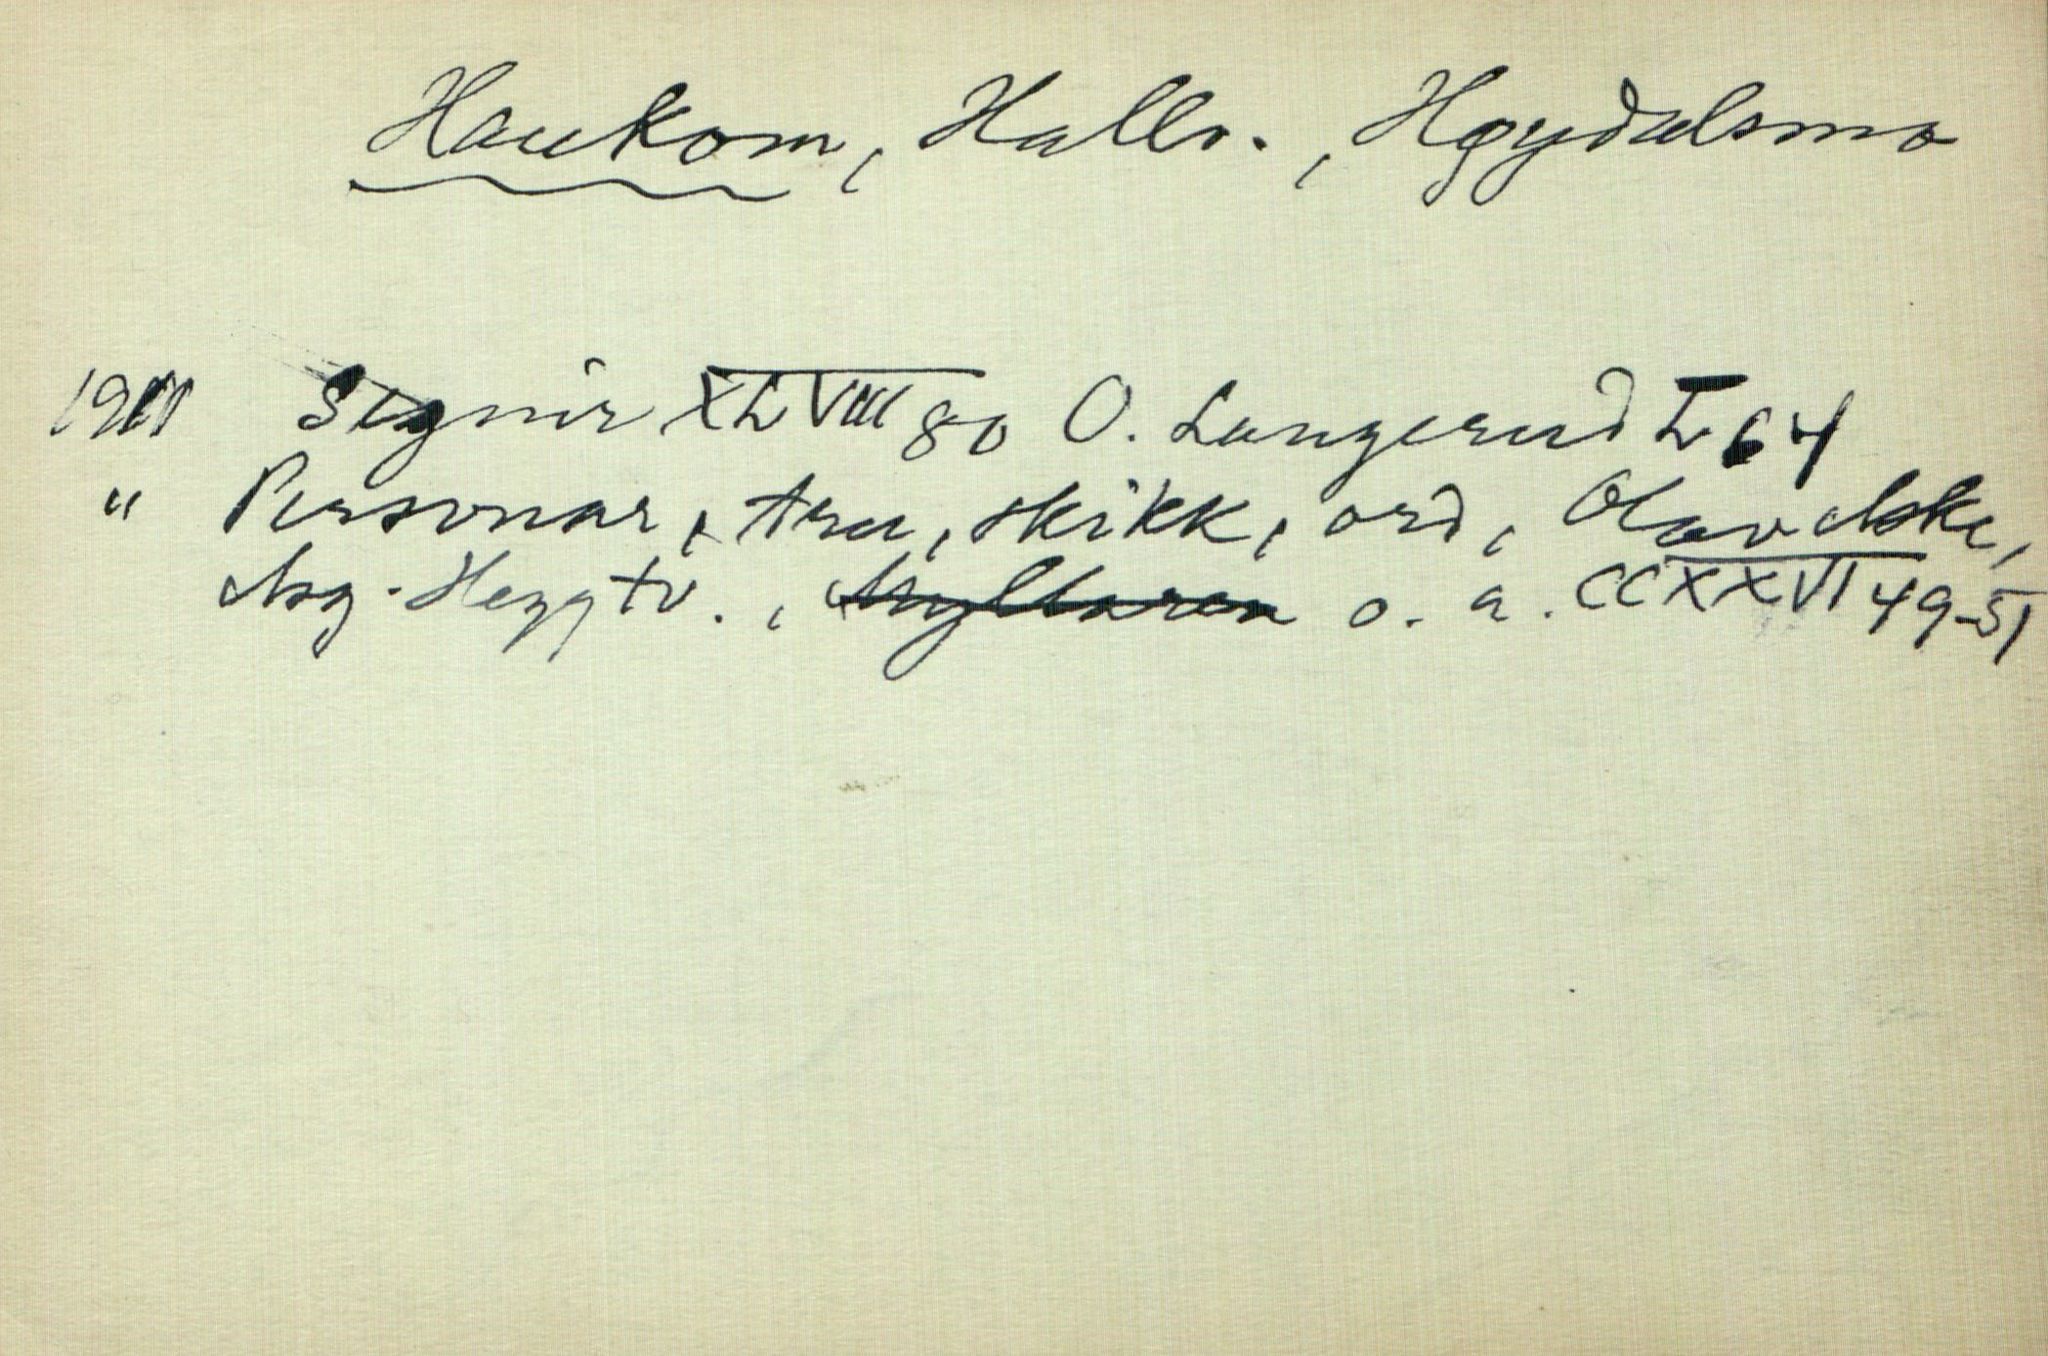 Haukom, Hallv., Høydalsmo
19 Segnir XLVIII 80 O. Langerud I 64
" Personar, tru, skikk, ord, Olav Aske,
Asg. Heggtv., o. a. CCXXVI 49-51